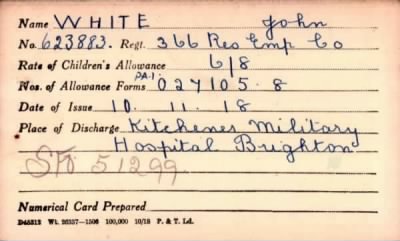 Name WHITE John
No. 623883. Regt. 366 Res Emp Co
Rate of Children's Allowance 6/8
Nos. of Allowance Forms PA.1. 027105.8
Date of Issue 10. 11. 18
Place of Discharge Kitchener Military
Hospital Brighton
SFO 51299
Numerical Card Prepared
D45312 Wt. 26357—1506 100,000 10/18 P. & T. Ld.